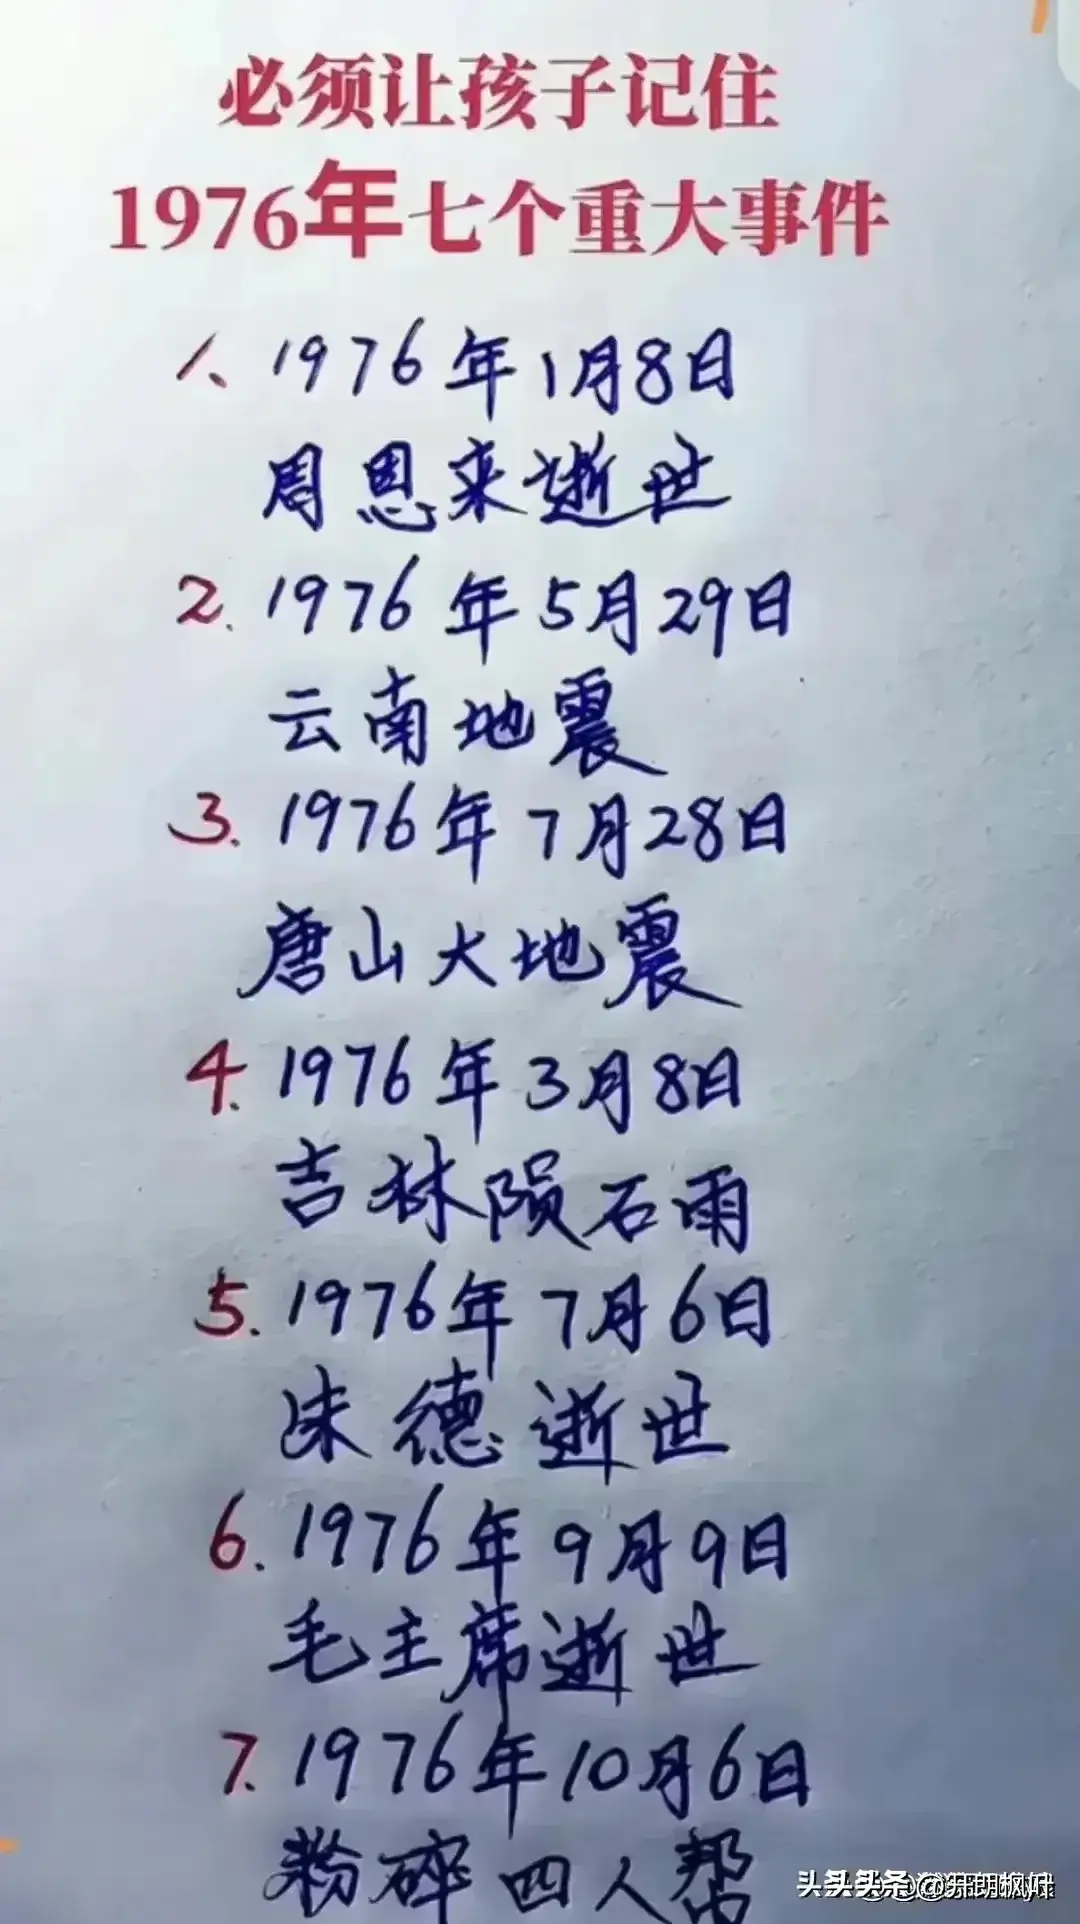 必须让孩子记住
1976年七个重大事件
1、1976年1月8日
周恩来逝世
2.1976年5月29日
云南地震
3.1976年7月28日
唐山大地震
4.1976年3月8日
吉林陨石雨
5.1976年7月6日
朱德逝世
6.1976年9月9日
毛主席逝世
7.1976年10月6日
粉碎四人帮
头条